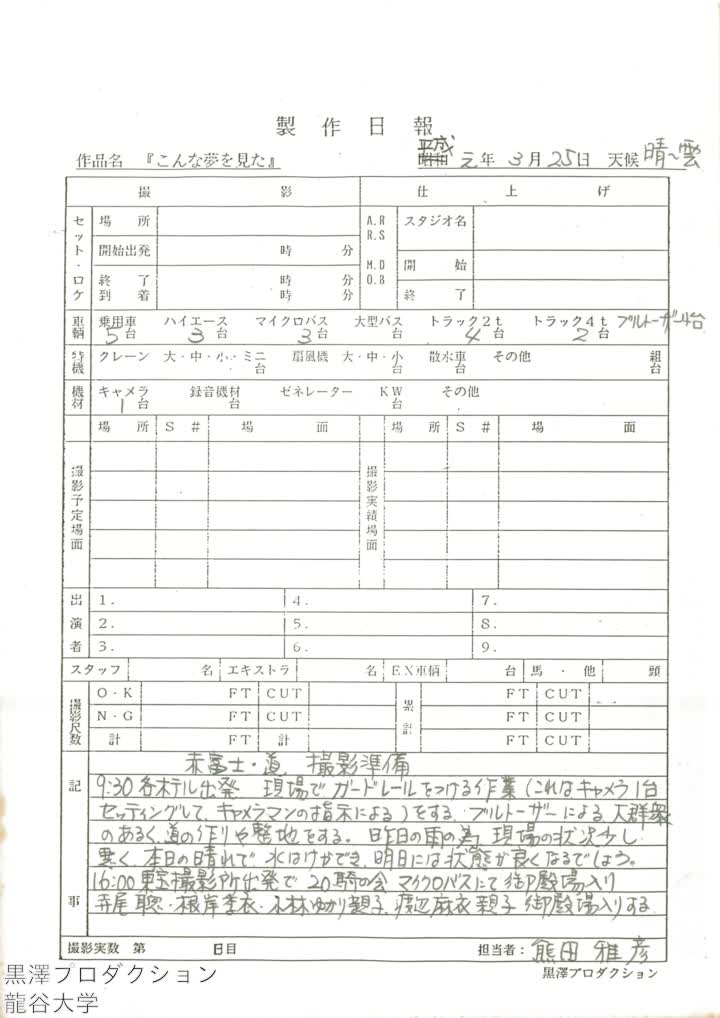 製作日報
作品名 『こんな夢を見た』 平成 元年 3月 25日 天候 晴〜雲
撮影 仕上げ
セット・ロケ 場所 A.R R.S スタジオ名
開始出発 時 分 M.D O.8 開始
終了 時 分 終了
到着 時 分
車輌 乗用車 ハイエース マイクロバス 大型バス トラック2t トラック4t ブルトーザー4台
5台 3台 3台 4台 2台
特機 クレーン 大・中・小・ミニ 扇風機 大・中・小 散水車 その他 組
台 台 台 台
機材 キャメラ 録音機材 ゼネレーター KW その他
1台 台 台
撮影予定場面 場所 S# 場面 撮影実績場面 場所 S# 場面
出演者 1. 4. 7.
2. 5. 8.
3. 6. 9.
スタッフ 名 エキストラ 名 EX車輌 台 馬・他 頭
撮影尺数 O・K FT CUT 累計 FT CUT
N・G FT CUT FT CUT
計 FT 計 FT CUT
記事
赤富士・道 撮影準備
9:30 各ホテル出発 現場でガードレールをつける作業(これはキャメラ1台
セッティングして、キャメラマンの指示による)をする。ブルトーザーによる、大群衆
のあるく道の作りや整地をする。昨日の雨の為、現場の状況少し
悪く、本日の晴れで、水はけができ、明日には状態が良くなるでしょう。
16:00 東宝撮影所出発で 20騎の会 マイクロバスにて御殿場入り
寺尾聰・根岸季衣・小林ゆかり親子、渡辺麻衣親子 御殿場入りする。
撮影実数 第 日目 担当者: 熊田雅彦
黒澤プロダクション
黒澤プロダクション
龍谷大学